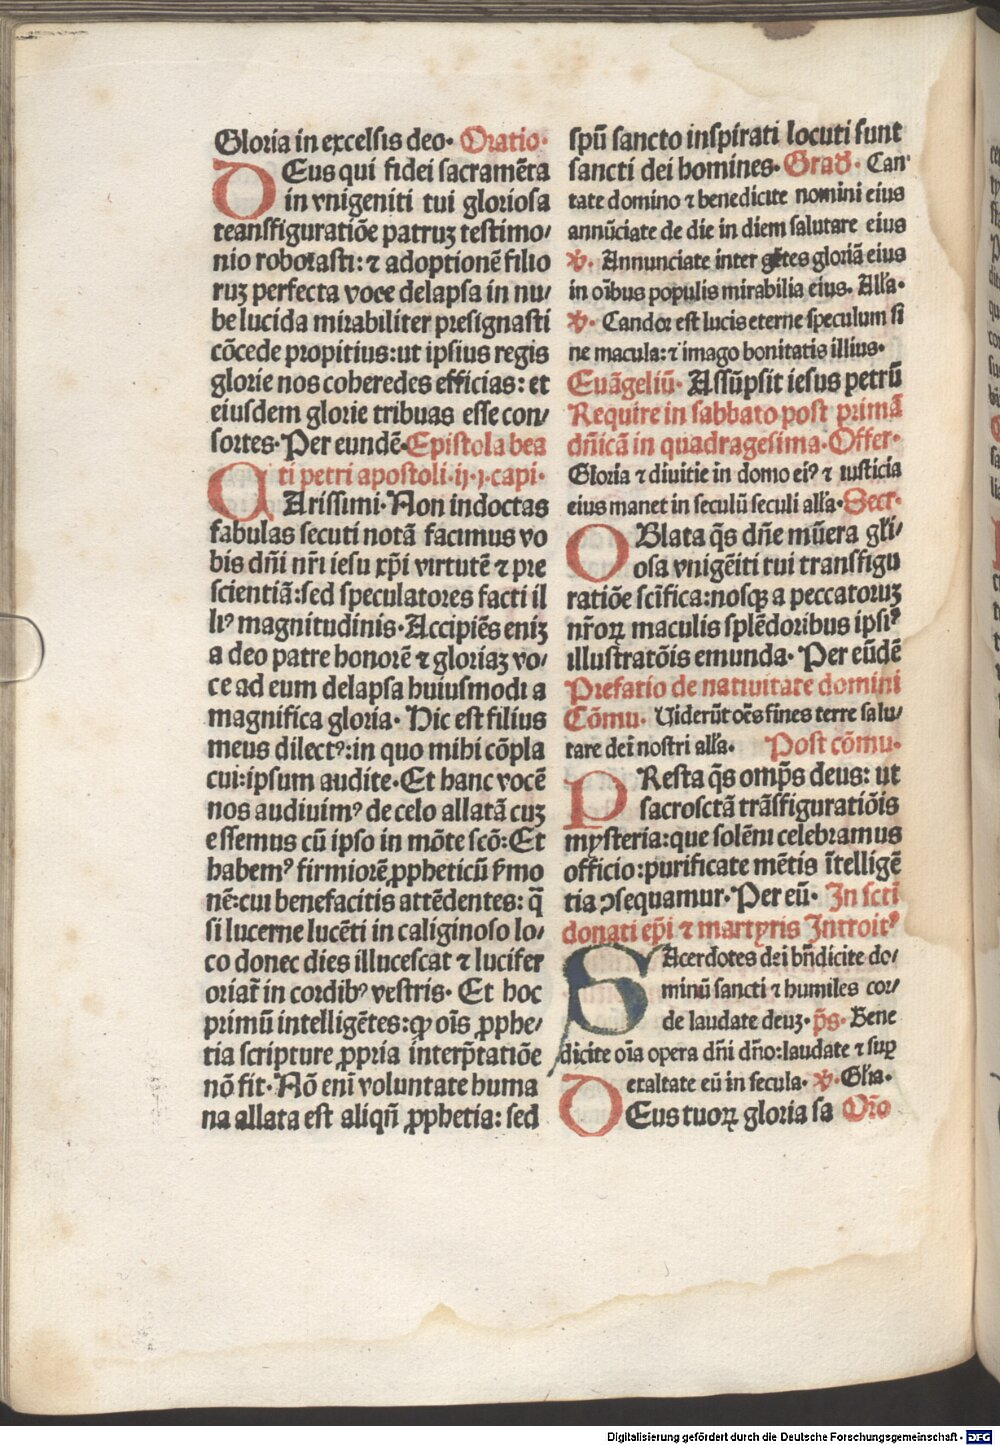 Gloria in excelsis deo· Oratio·
DEus qui fidei sacramēta
in vnigeniti tui gloriosa
teansfiguratiōe patruꝫ testimo/
nio roborasti: ⁊ adoptionē filio
ruꝫ perfecta voce delapsa in nu/
be lucida mirabiliter presignasti
cōcede propitius: ut ipsius regis
glorie nos coheredes efficias: et
eiusdem glorie tribuas esse con/
sortes· Per eundē· Epistola bea
ti petri apostoli·ij·j·capi·
CArissimi· Non indoctas
fabulas secuti notā facimus vo
bis dn̄i nr̄i iesu xp̄i virtutē ⁊ pre
scientiā: sed speculatores facti il
liꝰ magnitudinis· Accipiēs eniꝫ
a deo patre honorē ⁊ gloriaꝫ vo/
ce ad eum delapsa huiusmodi a
magnifica gloria· Hic est filius
meus dilectꝰ: in quo mihi cōpla
cui: ipsum audite· Et hanc vocē
nos audiuimꝰ de celo allatā cuꝫ
essemus cū ipso in mōte scō: Et
habemꝰ firmiorē ꝓpheticū ẜmo
nē: cui benefacitis attēdentes: q̄
si lucerne lucēti in caliginoso lo/
co donec dies illucescat ⁊ lucifer
oriat᷑ in cordibꝰ vestris· Et hoc
primū intelligētes: ꝙ oīs ꝓphe/
tia scripture ꝓpria interp̄tatiōe
nō fit· Nō eni voluntate huma
na allata est aliqn̄ ꝓphetia: sed
spū sancto inspirati locuti sunt
sancti dei homines· Grad̄· Can
tate domino ⁊ benedicite nomini eius
annūciate de die in diem salutare eius
℣· Annunciate inter gētes gloriā eius
in oībus populis mirabilia eius· Alľa·
℣· Candor est lucis eterne speculum si
ne macula: ⁊ imago bonitatis illius·
Euāgeliū· Assūpsit iesus petrū
Require in sabbato post primā
dn̄icā in quadragesima· Offer·
Gloria ⁊ diuitie in domo eiꝰ ⁊ iusticia
eius manet in seculū seculi alľa· Secr·
OBlata q̄s dn̄e mūera gľi/
osa vnigēiti tui transfigu
ratiōe scīfica: nosqꝫ a peccatoruꝫ
nr̄oꝝ maculis splēdoribus ipsiꝰ
illustratōis emunda· Per eūdē
Prefatio de natiuitate domini
Cōmu· Viderūt oēs fines terre salu/
tare dei nostri alľa· Post cōmu·
PResta q̄s omp̄s deus: ut
sacrosctā trāsfiguratiōis
mysteria: que solēni celebramus
officio: purificate mētis ītelligē
tia ꝯsequamur· Per eū· In scti
donati ep̄i ⁊ martyris Introitꝰ
SAcerdotes dei bn̄dicite do/
minū sancti ⁊ humiles cor/
de laudate deuꝫ· p̄s· Bene
dicite oīa opera dn̄i dn̄o: laudate ⁊ suꝑ
exaltate eū in secula· ℣· Gľia·
DEus tuoꝝ gloria sa Or̄o
Digitalisierung gefördert durch die Deutsche Forschungsgemeinschaft - DFG